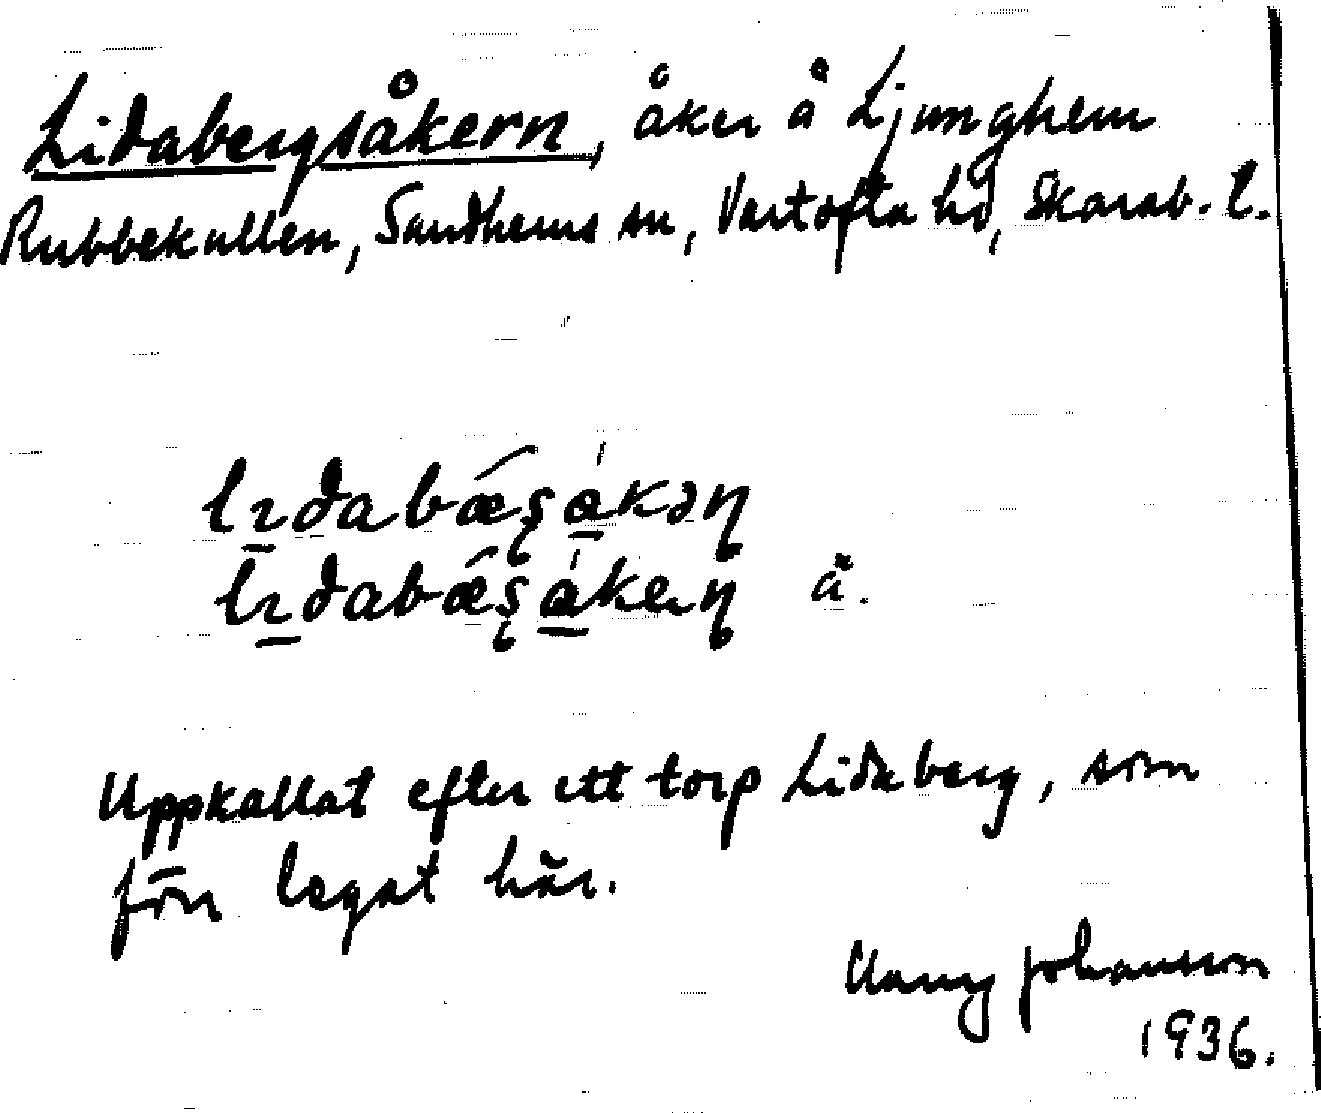 Lidabergsåkern, åker å Ljunghem
Rubbekullen, Sandhems sn, Vartofta hd, Skarab. l.
lɪdabǽʂákəɳ
lɪdabǽʂákeɳ å.
Uppkallat efter ett torp Lidaberg, som
förr legat här.
Johansson
1936.